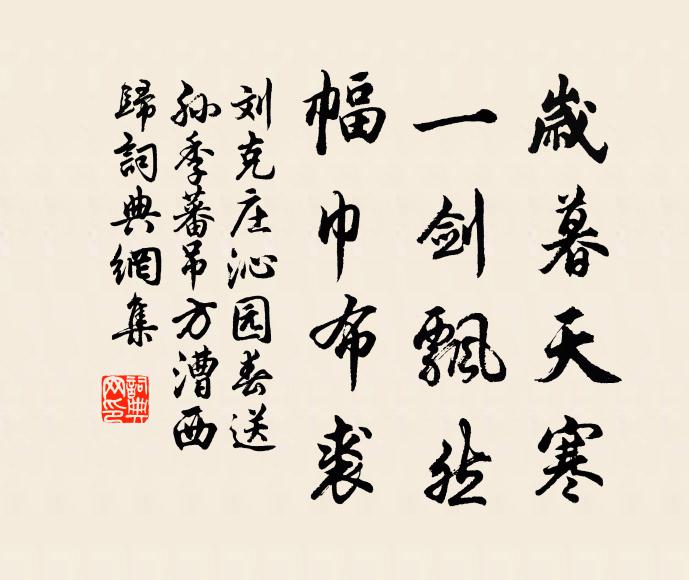 歲暮天寒
一剑飄然
幅巾布裘
刘克庄沁园春送
孙季蕃吊方漕西
歸詞典網集
詞典网印